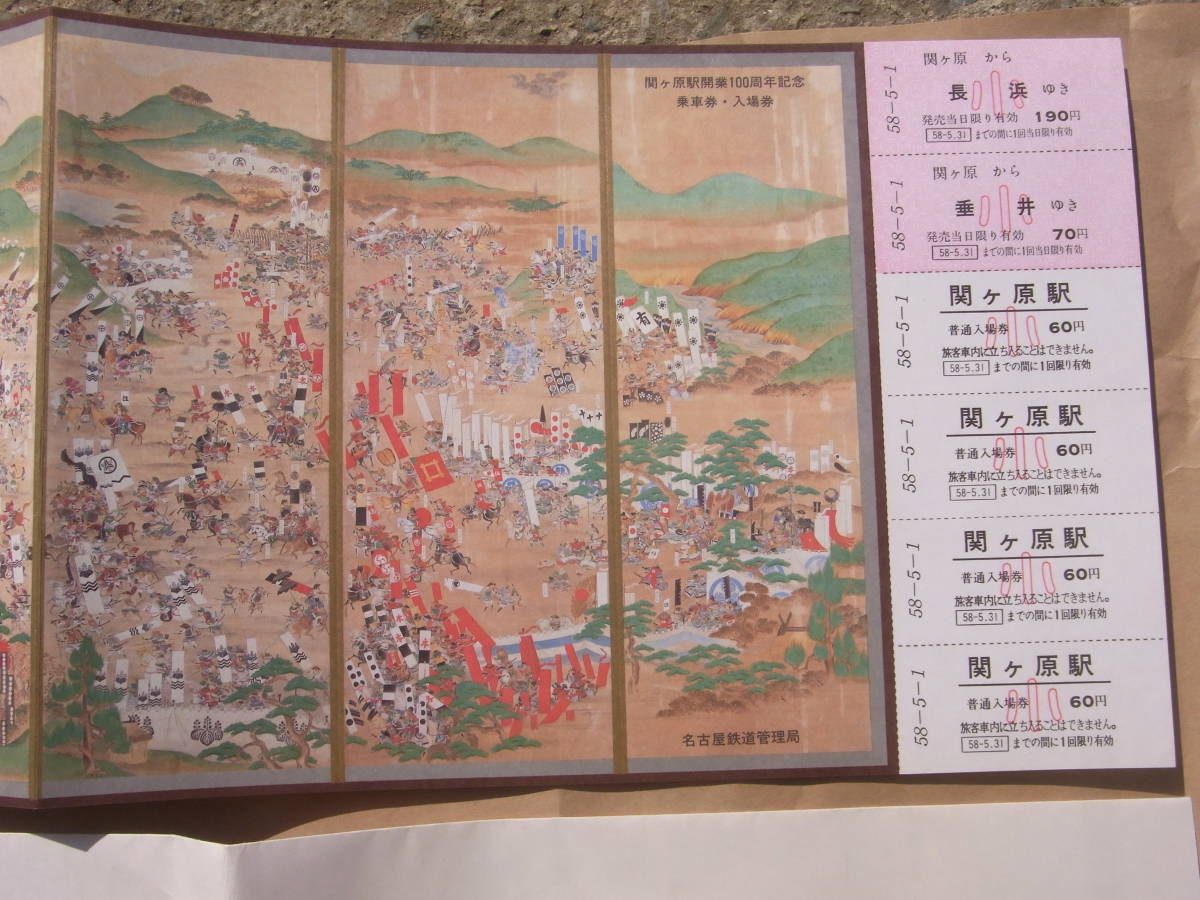 関ヶ原駅開業100周年記念
乗車券・入場券
名古屋鉄道管理局
58-5-1
関ヶ原 から
長浜 ゆき
発売当日限り有効 190円
58-5.31 までの間に1回当日限り有効
58-5-1
関ヶ原 から
垂井 ゆき
発売当日限り有効 70円
58-5.31 までの間に1回当日限り有効
58-5-1
関ヶ原駅
普通入場券 60円
旅客車内に立ち入ることはできません。
58-5.31 までの間に1回限り有効
58-5-1
関ヶ原駅
普通入場券 60円
旅客車内に立ち入ることはできません。
58-5.31 までの間に1回限り有効
58-5-1
関ヶ原駅
普通入場券 60円
旅客車内に立ち入ることはできません。
58-5.31 までの間に1回限り有効
58-5-1
関ヶ原駅
普通入場券 60円
旅客車内に立ち入ることはできません。
58-5.31 までの間に1回限り有効